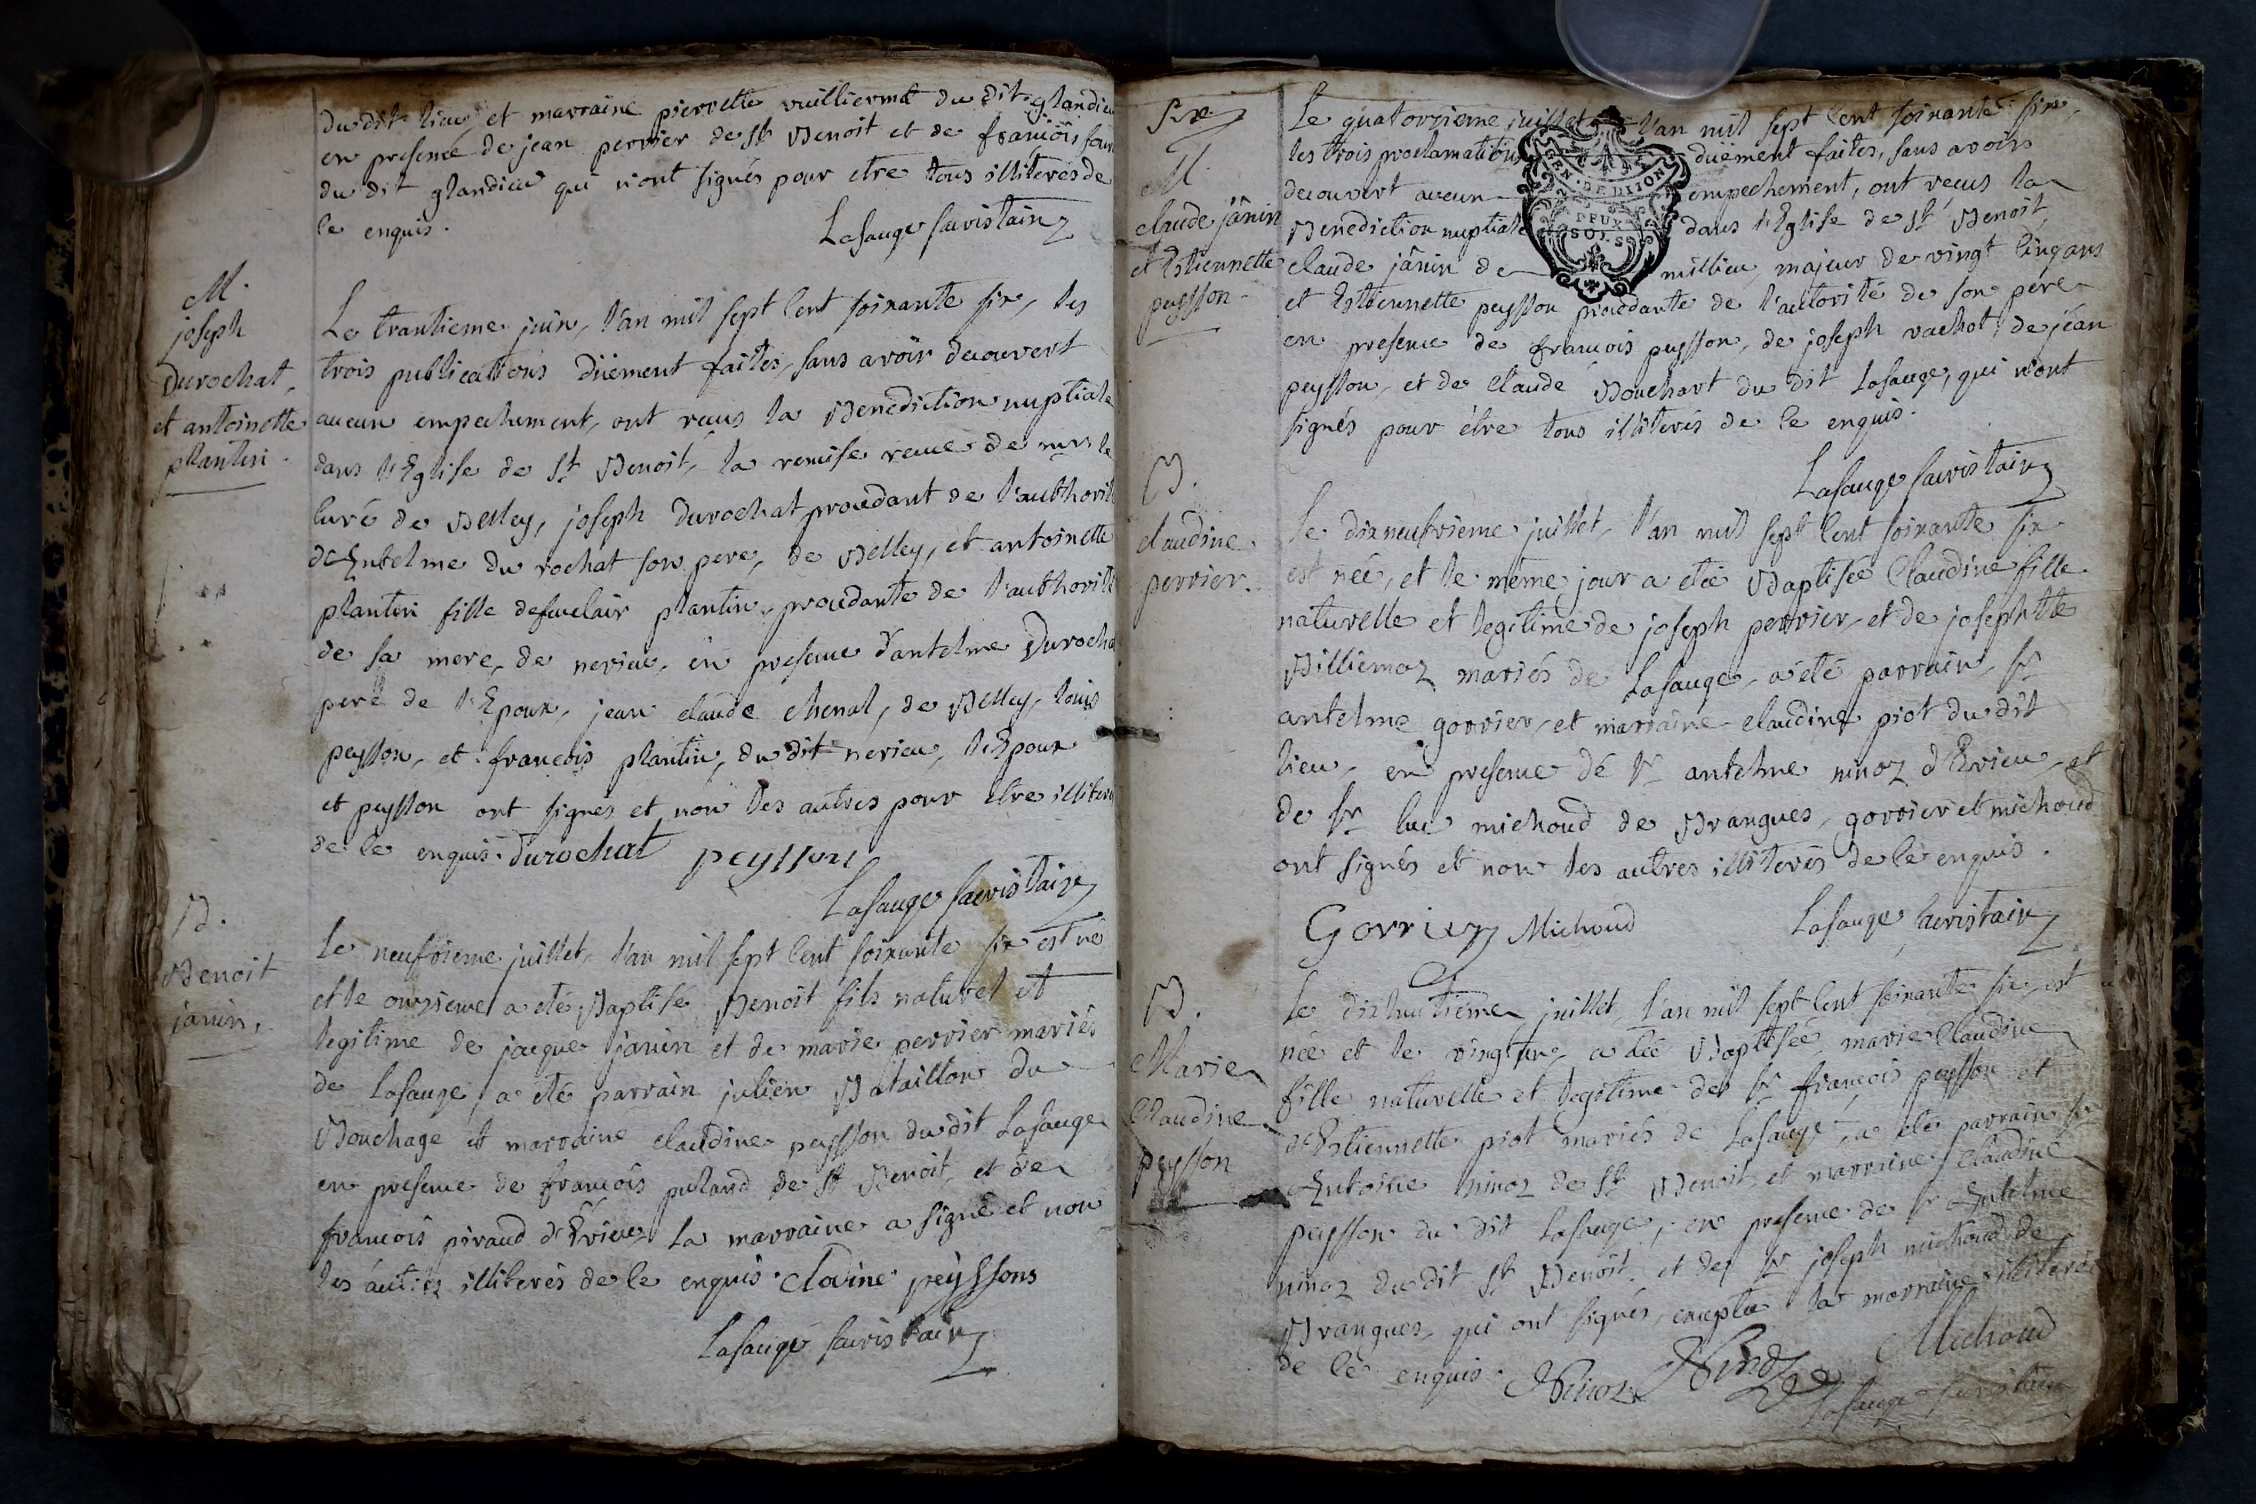 du dit lieu, et marraine pierrette vuilliermé du dit glandieu
en presence de jean perrier de St Benoit et de françois
du dit glandieu qui n'ont signés pour etre tous illiterés de
ce enquis.
Lasauge sacristain
M.
joseph
durochat,
et antoinette
plantin.
Le trantieme juin, l'an mil sept cent soixante six, les
trois publications düement faites, sans avoir decouvert
aucun empechement, ont reçus la Benediction nuptiale
dans l'Eglise de St Benoit, la remise recue de mrs le
curé de Belley, joseph durochat procedant de l'authorité
d'Entelme du rochat son pere, de Belley, et antoinette
plantin fille de feu clair plantin, procedante de l'authorité
de sa mere, de nerieu, en presence d'antelme Durochat
pere de l'Epoux, jean claude chenal, de Belley, louis
peysson, et françois plantin, du dit nerieu, l'Epoux
et peysson ont signés et non les autres pour etre illiterés
de ce enquis. durochat peysson
Lasauge sacristain
B.
Benoit
janin.
Le neufvieme juillet, l'an mil sept cent soixante six est né
et le onzieme a eté Baptisé Benoit fils naturel et
legitime de jacque janin et de marie perrier mariés
de Lasauge, a eté parrain julien Bataillon du
Bouchage et marraine claudine peysson du dit Lasauge
en presence de françois puland de St Benoit, et de
françois piraud d'Evieu, la marraine a signé et non
les autres illiterés de ce enquis. clodine peyssons
Lasauge sacristain
Six
M.
claude jânin
et Estiennette
peysson.
Le quatorzieme juillet l'an mil sept cent soixante six,
les trois proclamations düement faites, sans avoir
decouvert aucun empechement, ont recus la
Benediction nuptiale dans l'Eglise de St Benoit,
claude jânin de millieu, majeur de vingt cinq ans
et Estiennette peysson procedante de l'authorité de son pere
en presence de françois peysson, de joseph vachot, de jean
peysson, et de claude Bouchart du dit Lasauge, qui n'ont
signés pour être tous illiterés de ce enquis.
Lasauge sacristain
GEN. DE DIJON
DEUX
SOLS
B.
claudine
perrier.
Le dixneufvieme juillet, l'an mil sept cent soixante six
est née, et le même jour a etée Baptisée Claudine fille
naturelle et legitime de joseph perrier, et de josephtte
Billiemoz mariés de Lasauge, a été parrain, Sr
antelme gorrier, et marraine claudine piot du dit
lieu, en presence de Sr antelme ninoz d'Evieu, et
de Sr luc michoud de Brangues, gorrier et michoud
ont signés et non les autres illiterés de ce enquis.
Gorrier Michoud Lasauge sacristain
B.
Marie
Claudine
peysson
Le dixhuitieme juillet, l'an mil sept cent soixante six, est
née et le vingt un, a eté Baptisée marie Claudine
fille naturelle et legitime de Sr françois peysson et
d'Estiennette piot mariés de Lasauge, a eté parrain Sr
Antoine ninoz de St Benoit et marraine Claudine
peysson du dit Lasauge, en presence de Sr Entelme
ninoz du dit St Benoit, et de Sr joseph michoud de
Brangues, qui ont signés, excepté la marraine illiterée
de ce enquis. Ninoz Ninoz Michoud
Lasauge sacristain